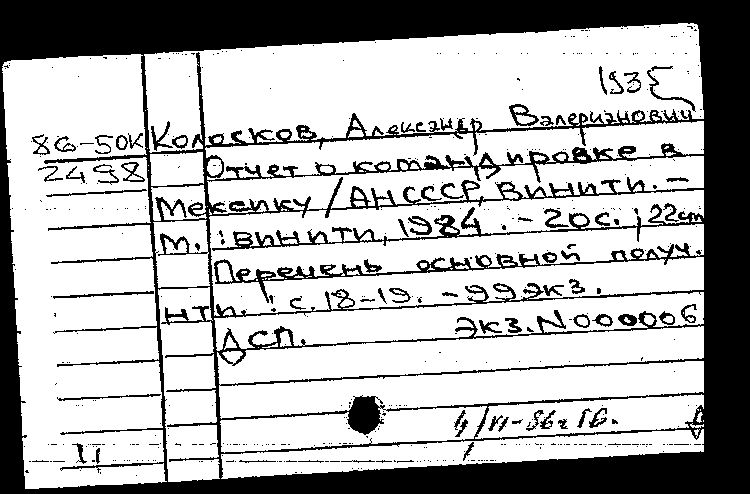 1935
86-50К Колосков, Александр Валерианович
2498 Отчет о командировке в
Мексику / АНСССР, ВИНИТИ. –
М. : ВИНИТИ, 1984. – 20с. ; 22см
Перечень основной получ.
нтл. : с. 18-19. – 99экз.
ДСП. Экз. N000006
4/VI-86г